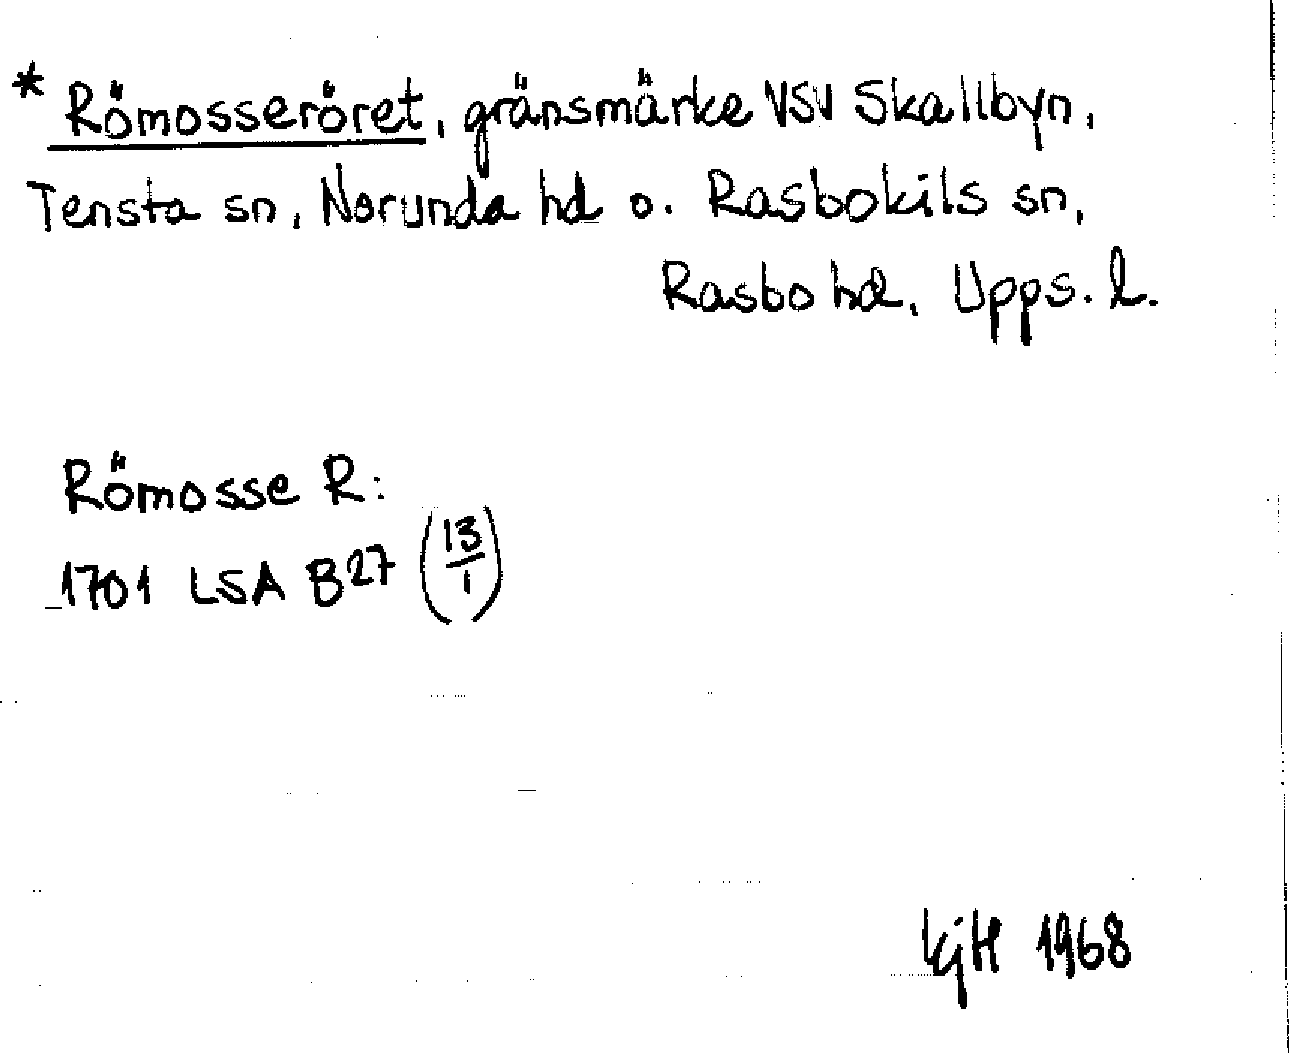 * Römosseröret, gränsmärke VSV Skallbyn,
Tensta sn, Norunda hd o. Rasbokils sn,
Rasbo hd, Upps. l.
Römosse R:
1701 LSA B27 (13/1)
KjH 1968